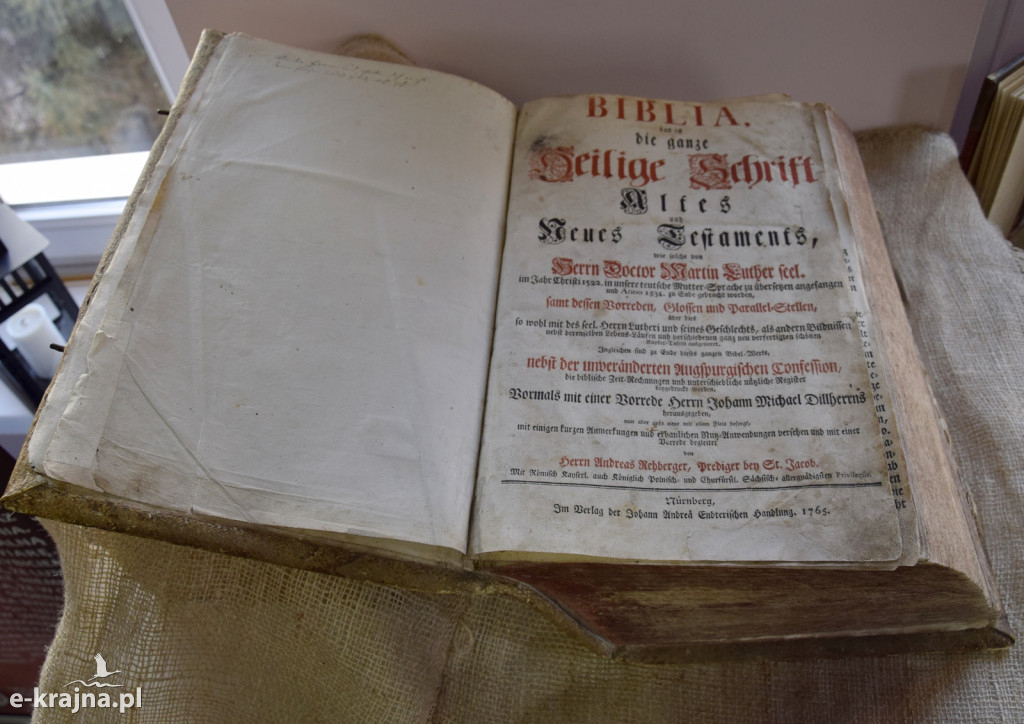 BIBLIA.
das ist
die ganze
Heilige Schrift
Altes
und
Neues Testaments,
wie solche von
Herrn Doctor Martin Luther seel.
im Jahr Christi 1522. in unsere teutsche Mutter-Sprache zu übersetzen angefangen
und Anno 1534. zu Ende gebracht worden,
samt dessen Vorreden, Glossen und Parallel-Stellen,
über dies
so wohl mit des seel. Herrn Lutheri und seines Geschlechts, als andern Bildnissen
nebst derenselben Lebens-Läufen und verschiedenen ganz neu verfertigten schönen
Kupfer-Tafeln ausgezieret.
Ingleichen sind zu Ende dieses ganzen Bibel-Werks,
nebst der unveränderten Augspurgischen Confession,
die biblische Zeit-Rechnungen und unterschiedliche nützliche Register
beygedruckt worden.
Vormals mit einer Vorrede Herrn Johann Michael Dillherrns
herausgegeben,
nun aber aufs neue mit allem Fleis besorgt,
mit einigen kurzen Anmerkungen und erbaulichen Nuz-Anwendungen versehen und mit einer
Vorrede begleitet
von
Herrn Andreas Rehberger, Prediger bey St. Jacob.
Mit Römisch Kayserl. auch Königlich Polnisch- und Churfürstl. Sächsisch- allergnädigsten Privilegiis.
Nürnberg,
Im Verlag der Johann Andreä Endterischen Handlung. 1765.
e-krajna.pl